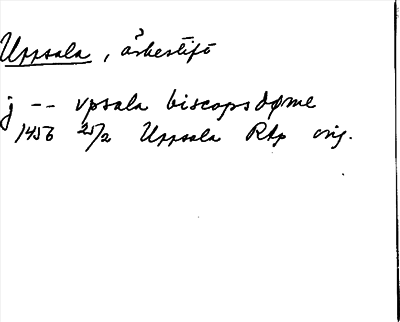 Uppsala, ärkestift
j -- vpsala biscopsdøme
1456 25/2 Uppsala RAp orig.